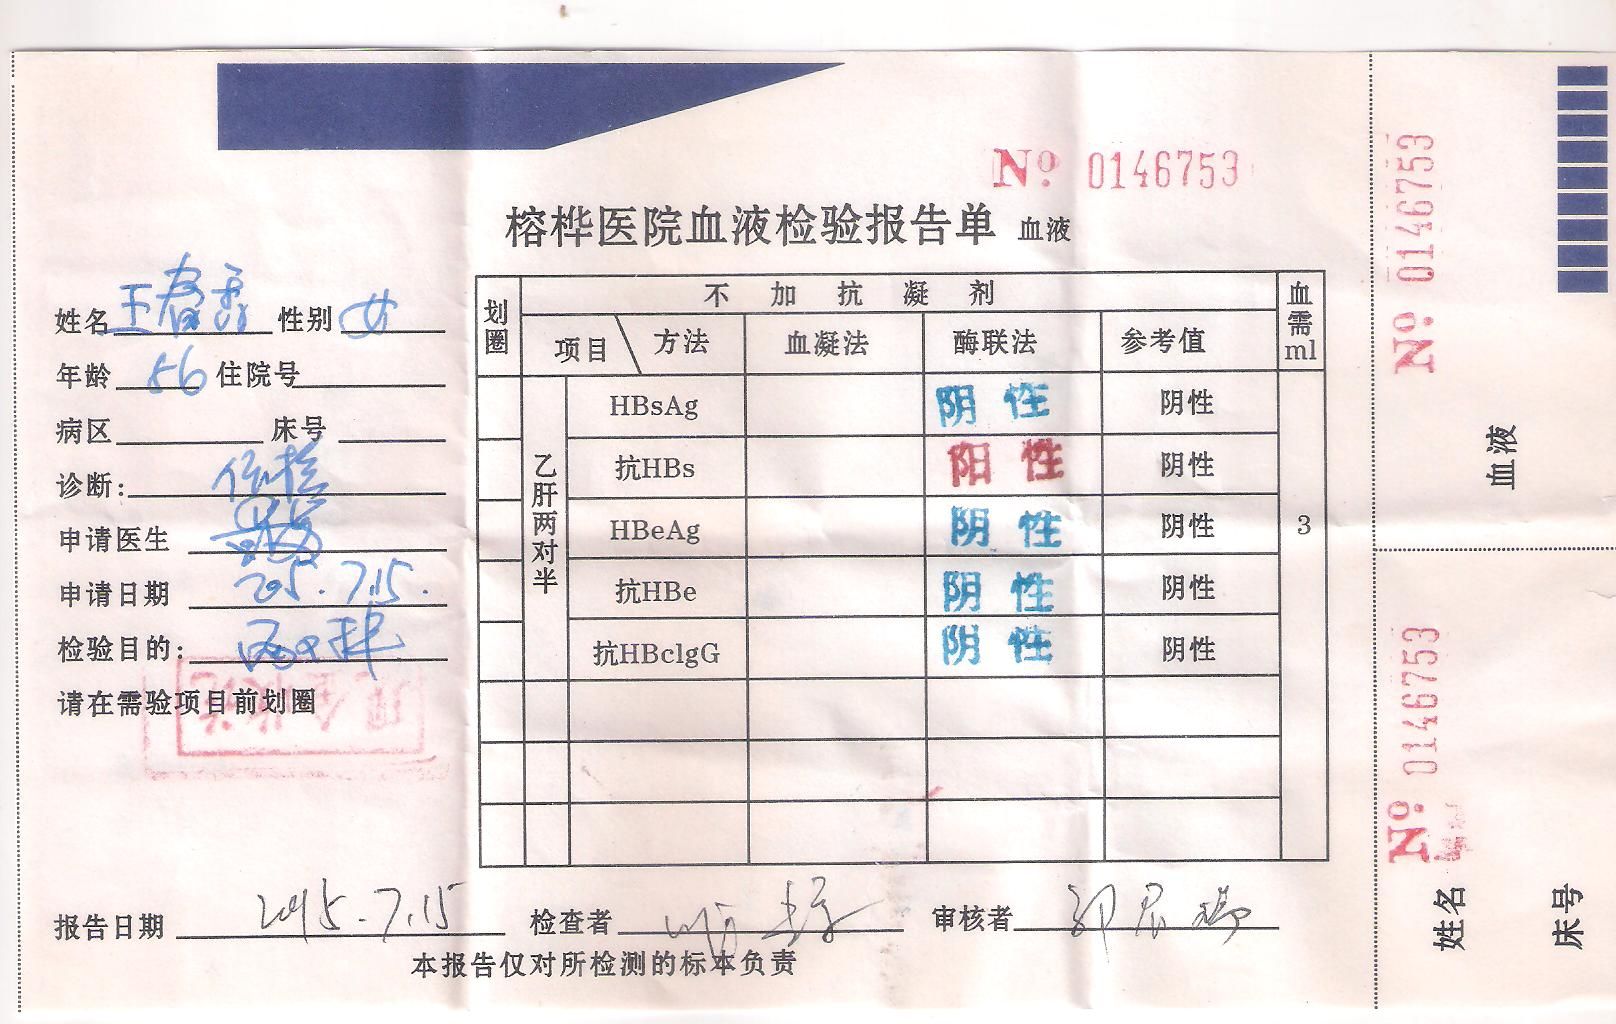 No. 0146753
榕桦医院血液检验报告单 血液
姓名 王春 性别 女
年龄 56 住院号
病区 床号
诊断: 体检
申请医生
申请日期 2015.7.15.
检验目的:
请在需验项目前划圈
划圈 不加抗凝剂 血需ml
项目 方法 血凝法 酶联法 参考值
乙肝两对半 3
HBsAg 阴性 阴性
抗HBs 阳性 阴性
HBeAg 阴性 阴性
抗HBe 阴性 阴性
抗HBclgG 阴性 阴性
报告日期 2015.7.15 检查者 审核者 郭
本报告仅对所检测的标本负责
No. 0146753
血液
No. 0146753
姓名
床号